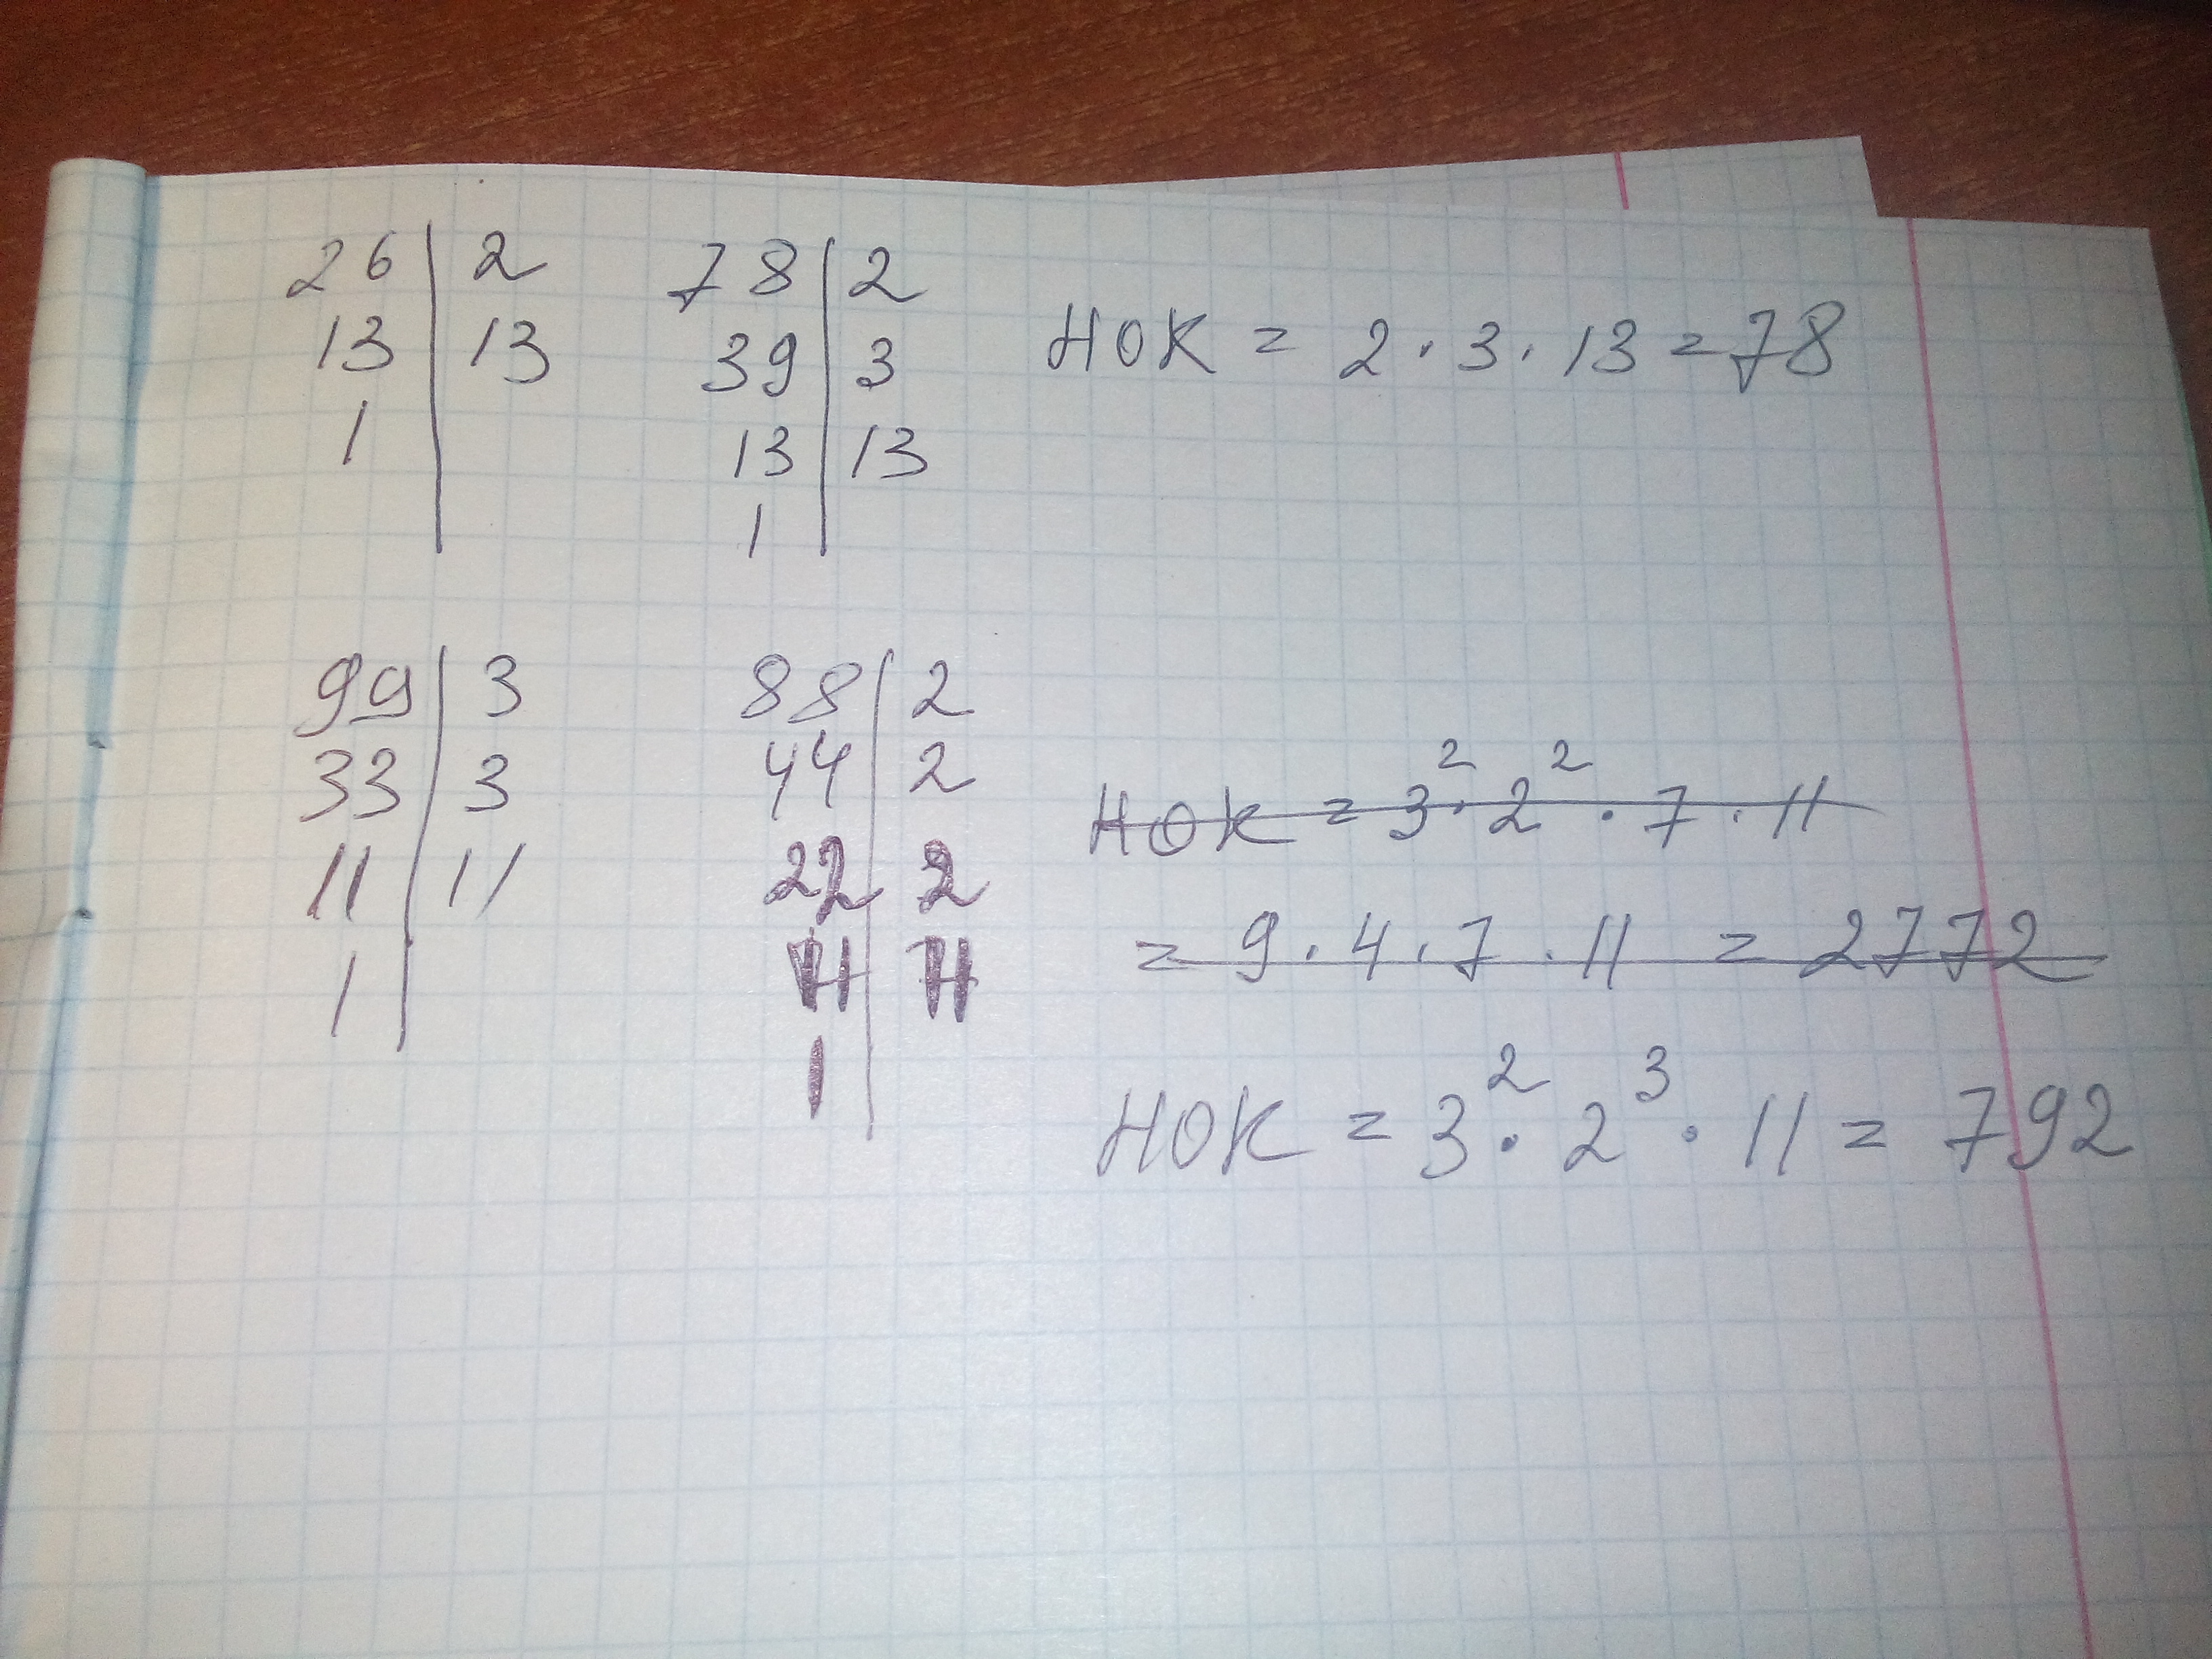 26 | 2
13 | 13
1
78 | 2
39 | 3
13 | 13
1
НОК = 2 · 3 · 13 = 78
99 | 3
33 | 3
11 | 11
1
88 | 2
44 | 2
22 | 2
11 | 11
1
НОК = 3² · 2² · 7 · 11
= 9 · 4 · 7 · 11 = 2772
НОК = 3² · 2³ · 11 = 792